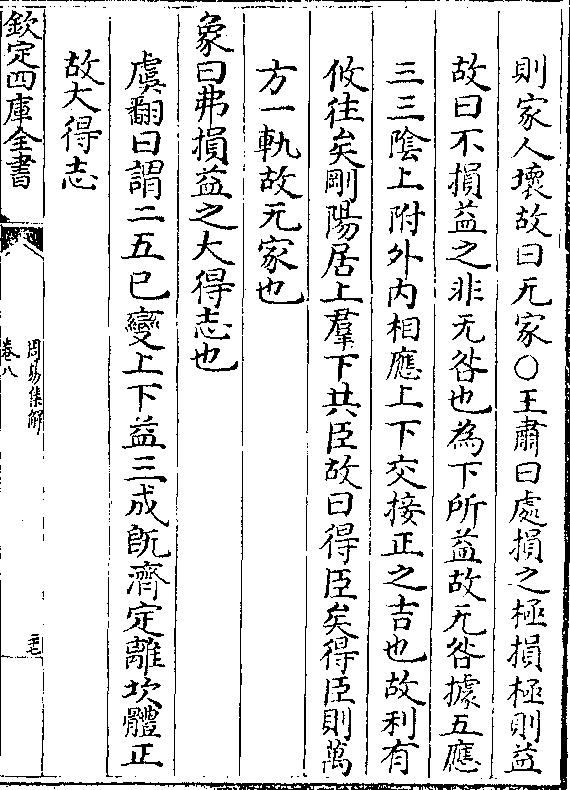 則家人壞故曰无家○王肅曰處損之極損極則益
故曰不損益之非无咎也為下所益故无咎據五應
三三陰上附外內相應上下交接正之吉也故利有
攸往矣剛陽居上羣下共臣故曰得臣矣得臣則萬
方一軌故无家也
象曰弗損益之大得志也
虞翻曰謂二五已變上下益三成旣濟定離坎體正
故大得志
欽定四庫全書
周易集解
卷八